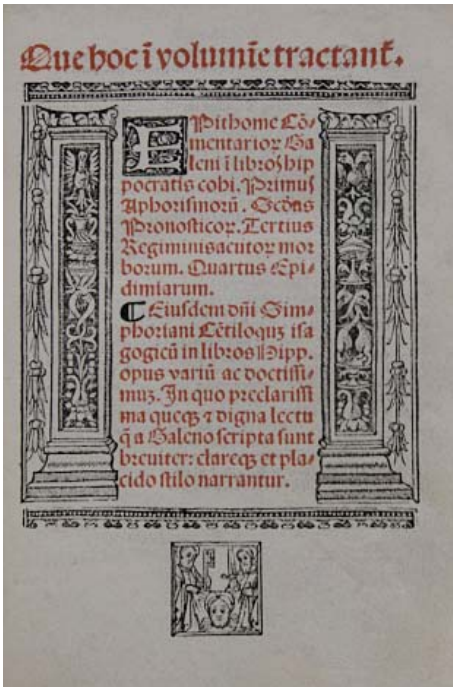 Que hoc ĩ volumĩe tractant᷑.
EPithome Cõ-
mentarioꝝ Ga
leni ĩ libroſ hip
pocratis cohi. Primuſ
Aphoriſmorũ. Scd̃us
Pronoſticoꝝ. Tertius
Regiminis acutoꝝ mor
borum. Quartus Epi-
dimiarum.
¶ Eiuſdem dñi Sim-
phoriani Cẽtiloquiũ iſa
gogicũ in libros Hipp.
opus variũ ac doctiſſi-
muꝫ. In quo preclariſſi
ma queqꝫ ⁊ digna lectu
q̃ a Galeno ſcripta ſunt
breuiter: clareqꝫ et pla-
cido ſtilo narrantur.